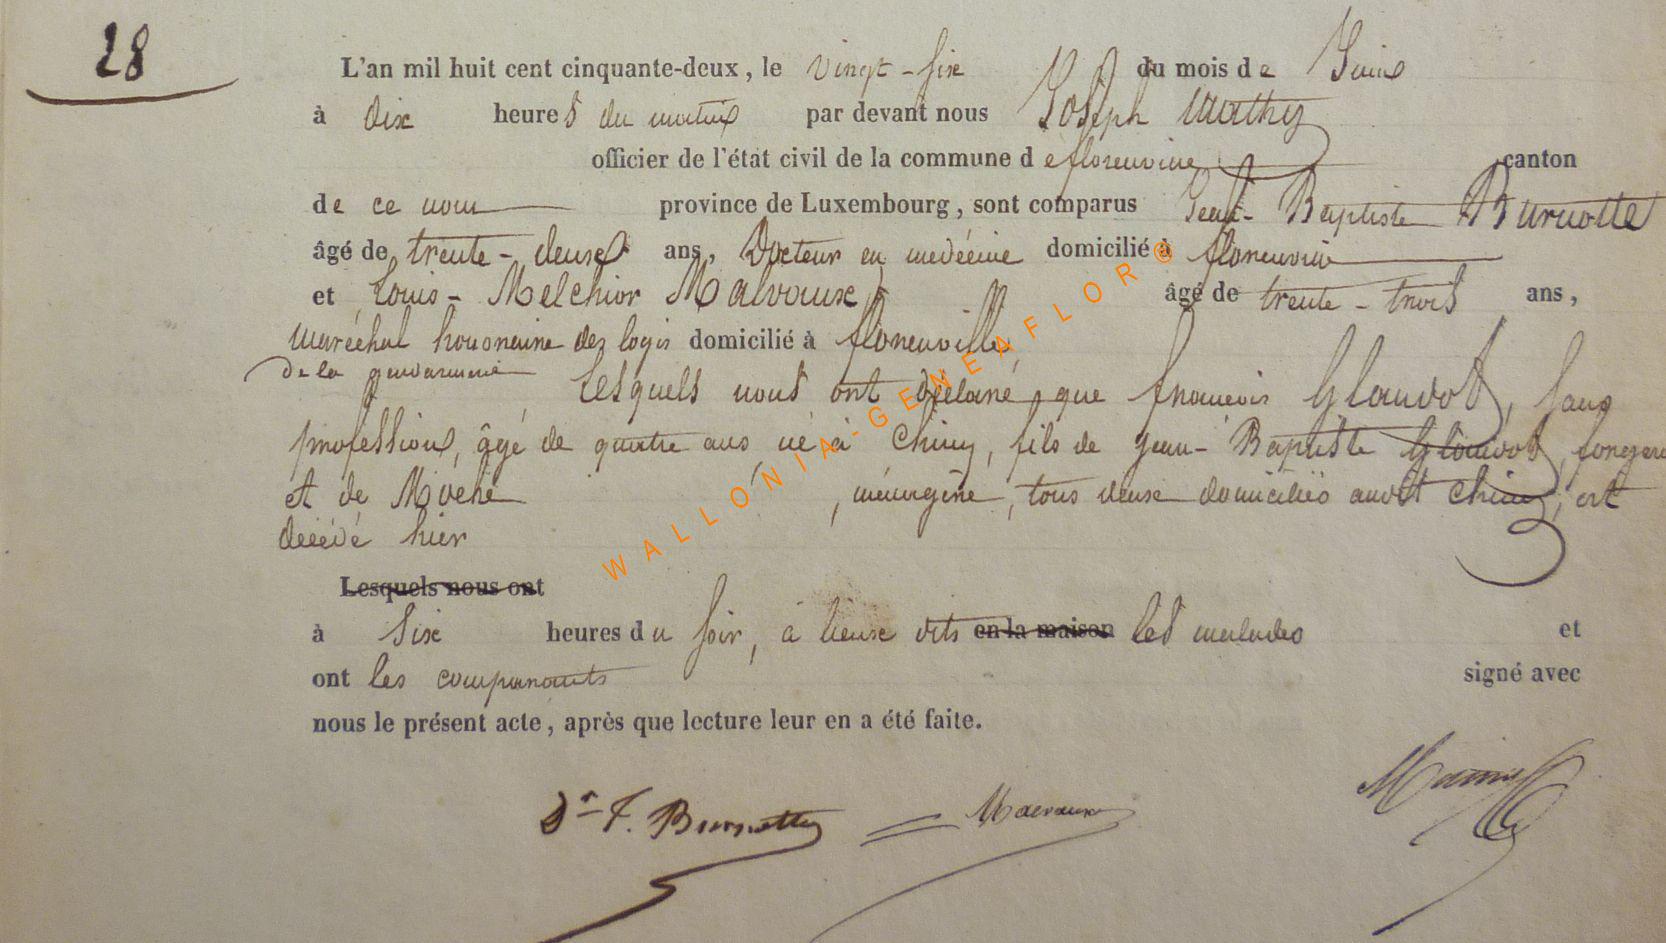 28
L'an mil huit cent cinquante-deux, le vingt-six du mois de Juin
à dix heures du matin par devant nous Joseph Mathy
officier de l'état civil de la commune de florenville canton
de ce nom province de Luxembourg, sont comparus Jean-Baptiste Burnotte
âgé de trente-deux ans, Docteur en medécine domicilié à florenville
et Louis-Melchior Malvaux, âgé de trente-trois ans,
maréchal des logis domicilié à florenville,
de la gendarmerie Lesquels nous ont déclaré que francois Glouvot, sans
profession, âgé de quatre ans, né à Chiny, fils de jean-Baptiste Glouvot, forgeron
et de , ménagère, tous deux domiciliés audit Chiny, est
décédé hier
Lesquels nous ont
à Six heures du soir, à lieux dits en la maison les malades et
ont les comparants signé avec
nous le présent acte, après que lecture leur en a été faite.
Dr F. Burnotte Malvaux
WALLONIA-GENEAFLOR©